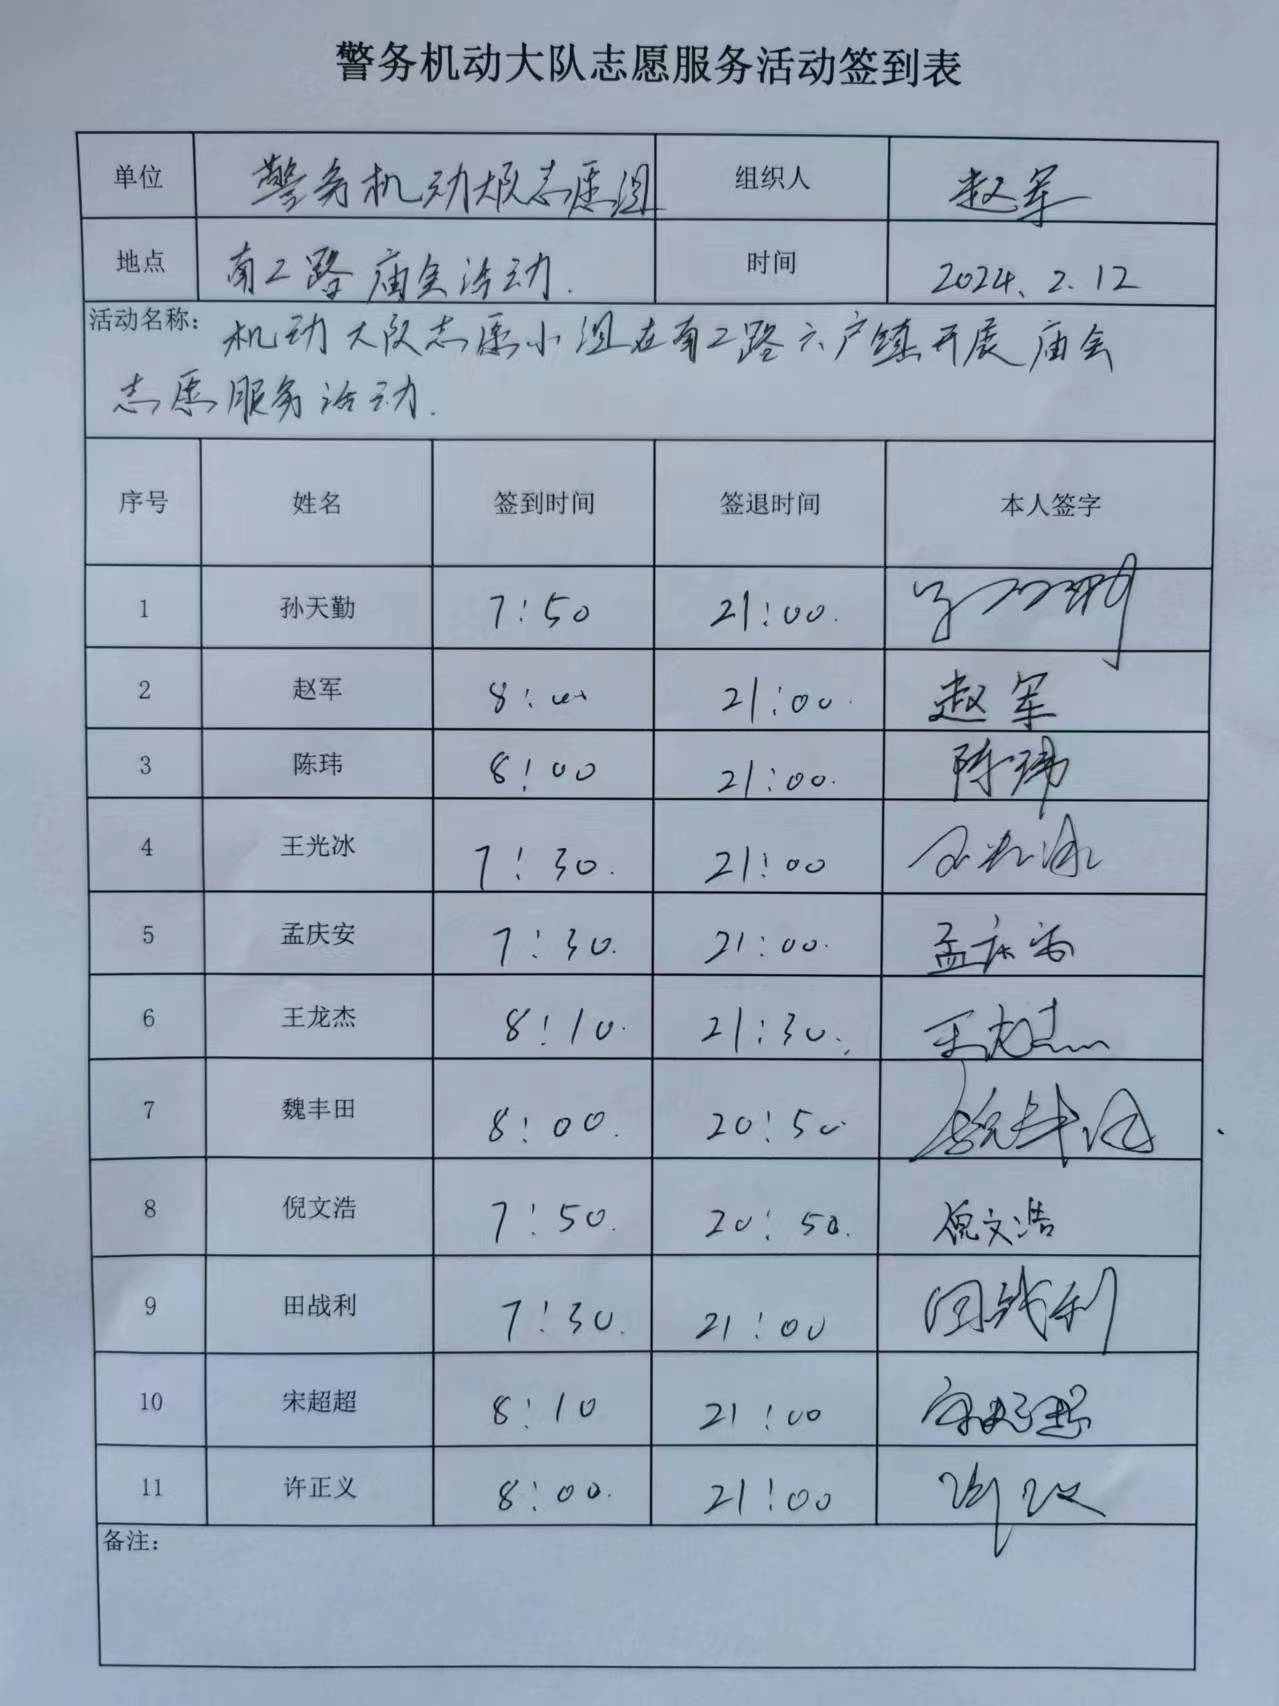 警务机动大队志愿服务活动签到表
单位 警务机动大队志愿组 组织人 赵军
地点 南二路庙会活动. 时间 2024.2.12
活动名称: 机动大队志愿小组在南二路六户镇开展庙会
志愿服务活动.
序号 姓名 签到时间 签退时间 本人签字
1 孙天勤 7:50 21:00.
2 赵军 8:00 21:00. 赵军
3 陈玮 8:00 21:00. 陈玮
4 王光冰 7:30. 21:00 王光冰
5 孟庆安 7:30. 21:00. 孟庆安
6 王龙杰 8:10. 21:30. 王龙杰
7 魏丰田 8:00. 20:50. 魏丰田
8 倪文浩 7:50. 20:50. 倪文浩
9 田战利 7:30. 21:00 田战利
10 宋超超 8:10 21:00 宋超超
11 许正义 8:00. 21:00
备注: